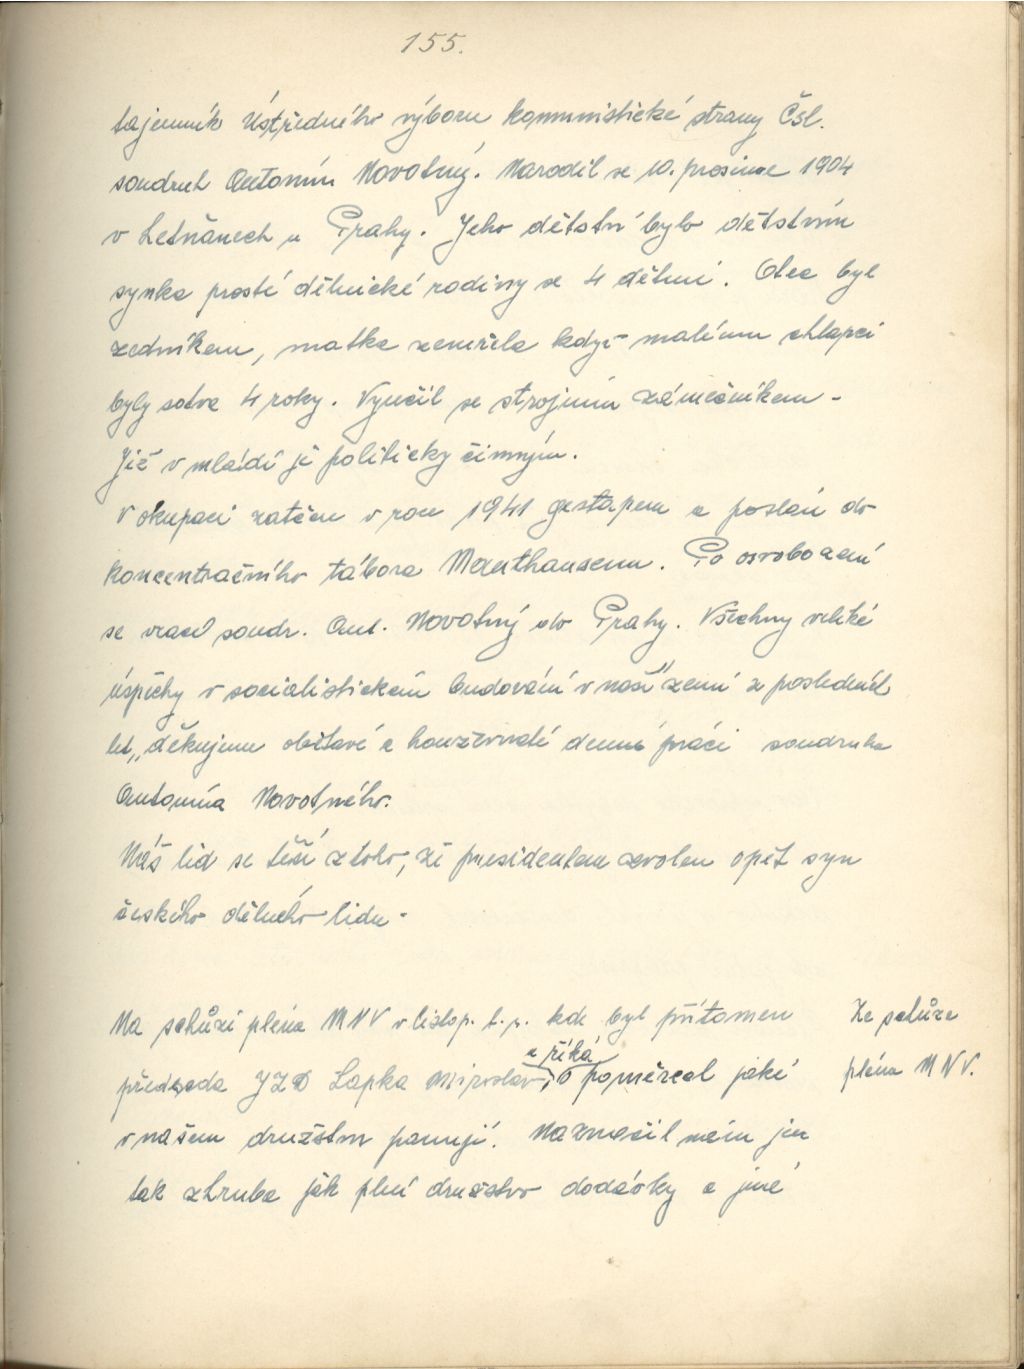 155.
tajemník Ústředného výboru komunistické strany Čsl.
soudruh Antonín Novotný. Narodil se 10. prosince 1904
v Letňanech u Prahy. Jeho dětství bylo dětstvím
synka prosté dělnické rodiny se 4 dětmi. Otec byl
zedníkem, matka zemřela když malému chlapci
byly sotva 4 roky. Vyučil se strojním zámečníkem.
Již v mládí je politicky činným.
V okupaci zatčen v roce 1941 gestapem a poslán do
koncentračního tábora Mauthausenu. Po osvobození
se vrací soudr. Ant. Novotný do Prahy. Všechny veliké
úspěchy v socialistickém budování v naší zemi z posledních
let, děkujeme obětavé a houževnaté denní práci soudruha
Antonína Novotného.
Náš lid se těší z toho, že presidentem zvolen opět syn
českého dělného lidu.
Na schůzi pléna MNV v listop. t. r. kde byl přítomen
Ze schůze
a říká
předseda JZD Lapka Miroslav, o poměrech jaké
pléna MNV.
v našem družstvu panují. Naznačil nám jen
tak zhruba jak plní družstvo dodávky a jiné